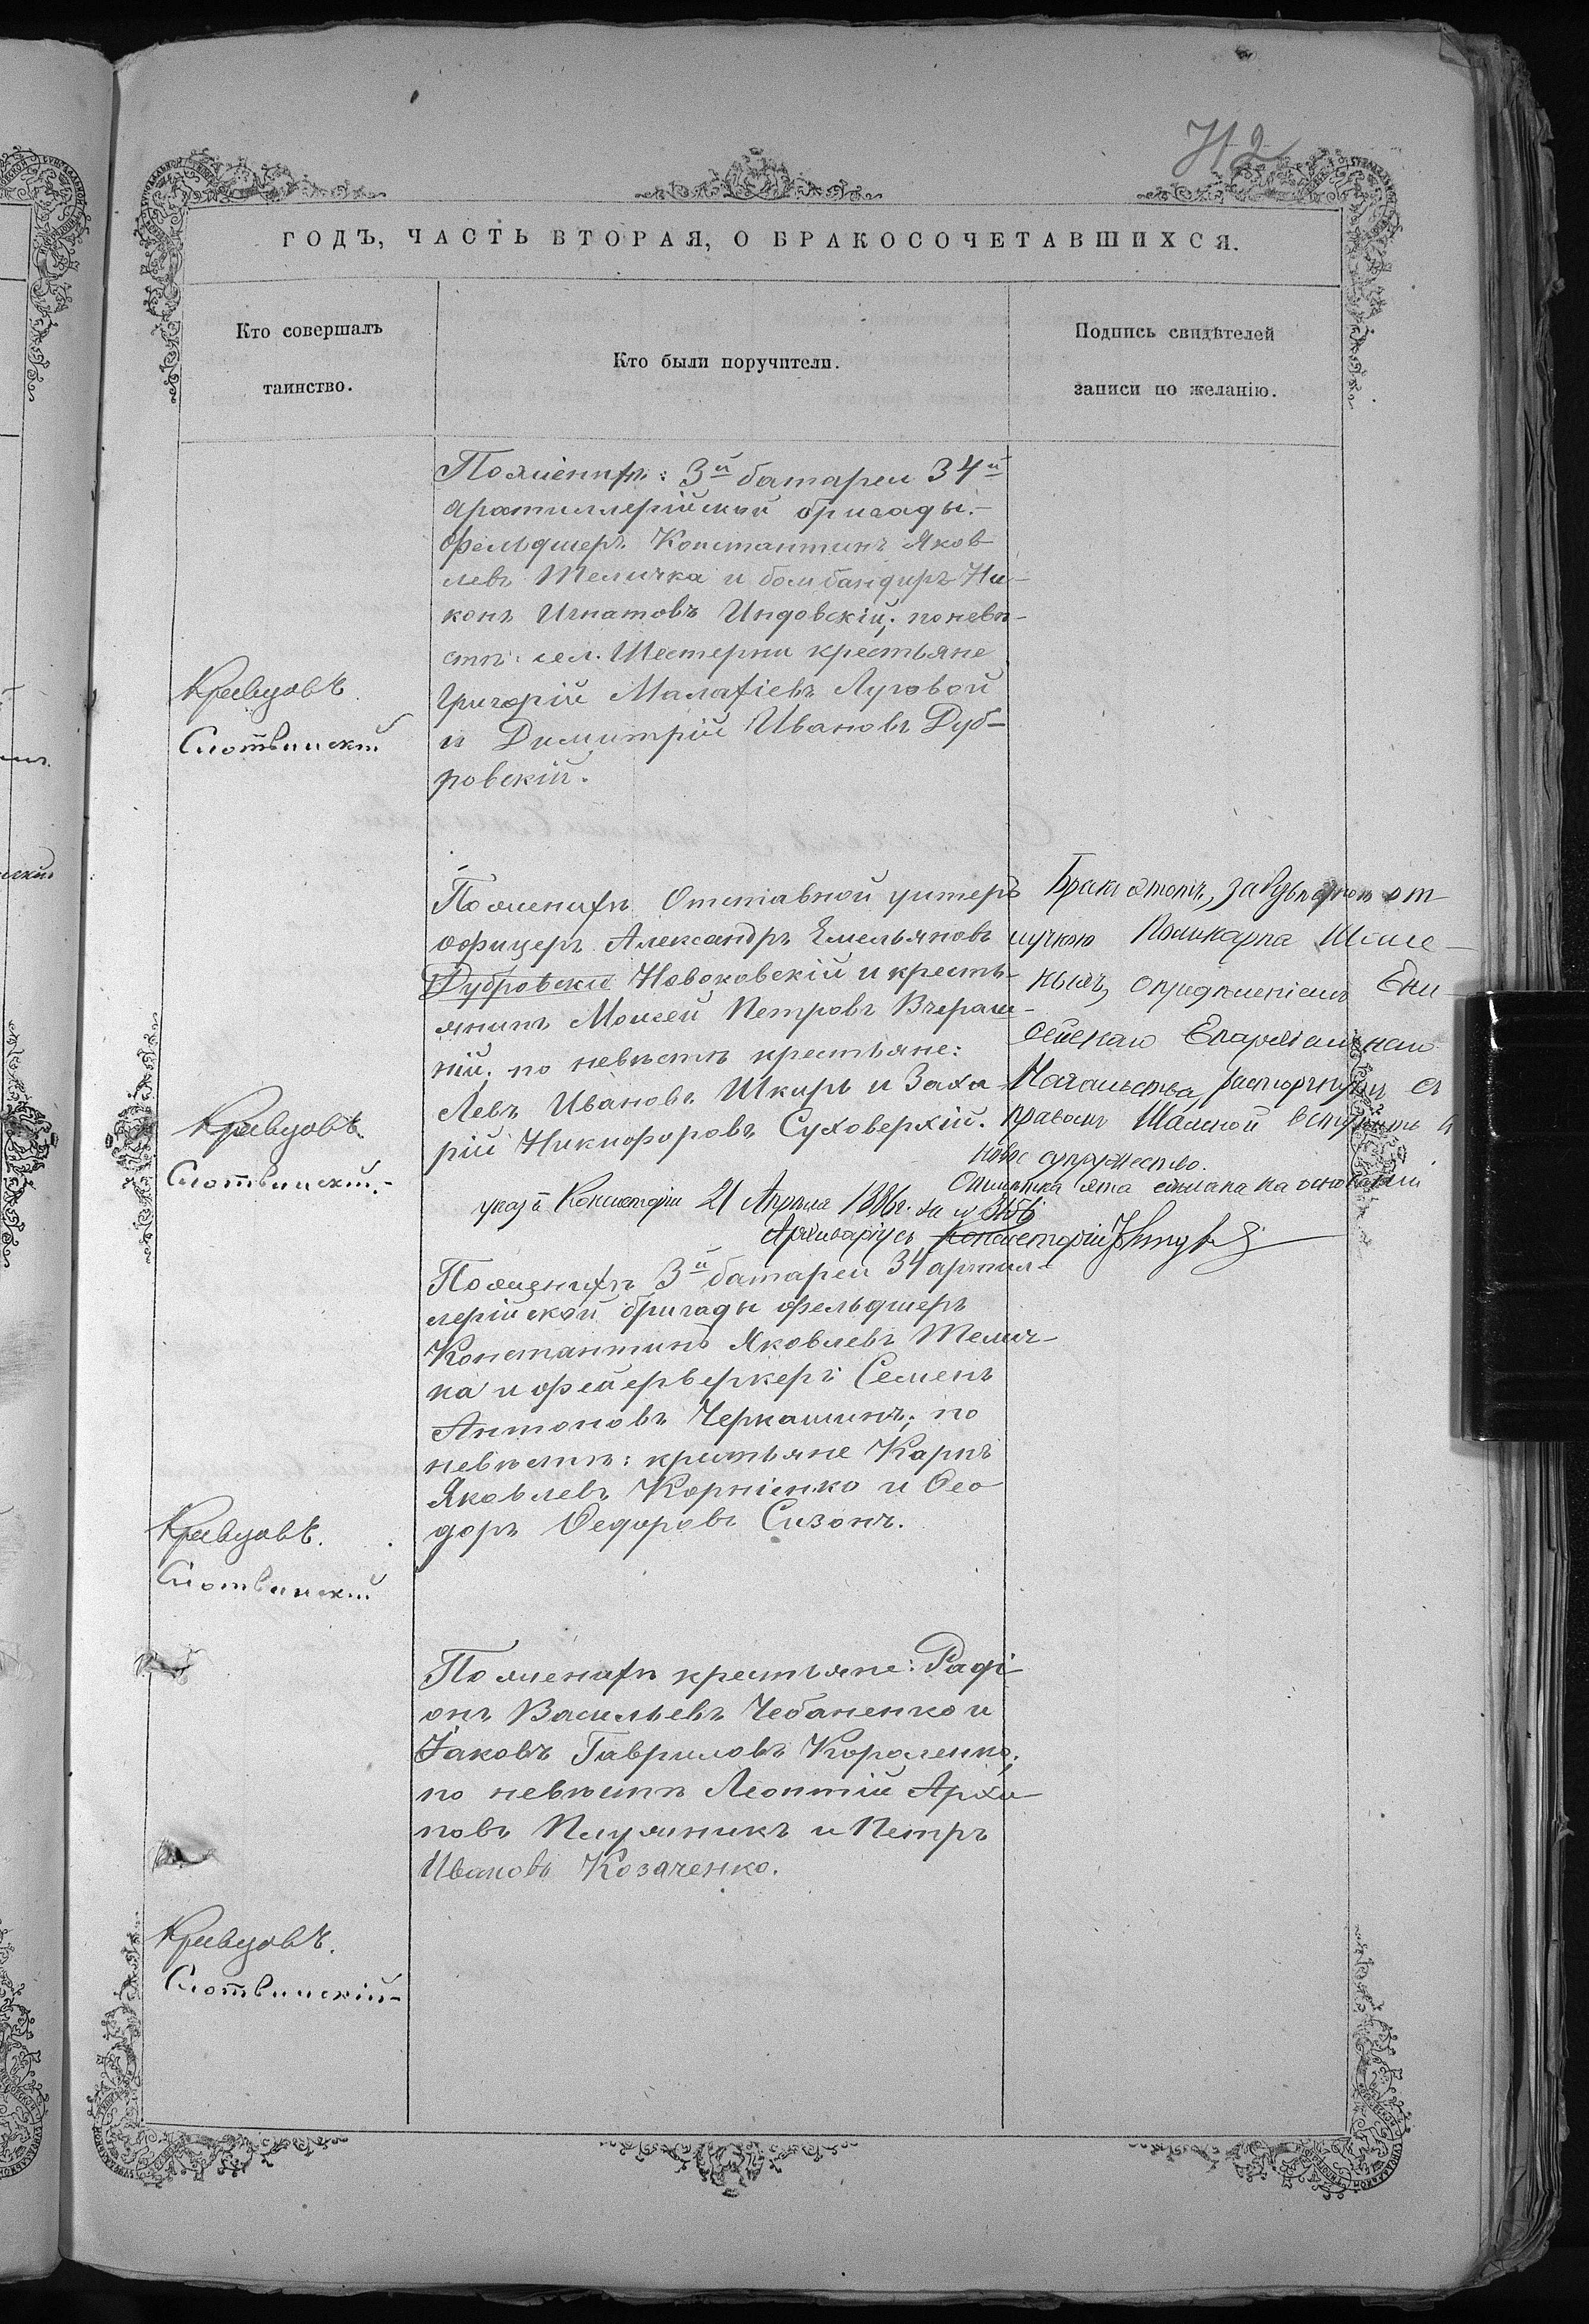 712
ГОДЪ, ЧАСТЬ ВТОРАЯ, О БРАКОСОЧЕТАВШИХСЯ.
Кто совершалъ
таинство.
Кто были поручители.
Подпись свидѣтелей
записи по желанію.
По женихѣ: 3й батареи 34й
артиллерійской бригады.
фельдшеръ Константинъ Яков-
левъ Теличка и бомбандиръ Ни-
конъ Игнатовъ Индовскій; по невѣ-
стѣ: сел. Шестерни крестьяне
Григорій Малафіевъ Луговой
и Димитрій Ивановъ Дуб-
ровскій.
Кравцовъ
Слотвинскій
По женихѣ Отставной унтеръ
офицеръ Александръ Емельяновъ
Дубровскій Новоковскій и кресть-
янинъ Моисей Петровъ Вчераш-
ній; по невѣстѣ крестьяне:
Левъ Ивановъ Шкиръ и Заха-
рій Никифоровъ Суховерхій.
Кравцовъ.
Слотвинскій.-
Бракъ этотъ, за безвѣстною от-
лучкою Поликарпа
опредѣленіемъ Ени-
сейскаго Епархіальнаго
Начальства, расторгнутъ съ
правомъ вступить въ
новое супружество.
Отмѣтка эта сдѣлана на основаніи
указа Консисторіи 21 Апрѣля 1886г. за №
Архиваріусъ Консисторіи
По женихѣ 3й батареи 34 артил-
лерійской бригады фельдшеръ
Константинъ Яковлевъ Телич-
ка и фейерверкеръ Семенъ
Антоновъ Черкашинъ; по
невѣстѣ: крестьяне Карпъ
Яковлевъ Корніенко и Ѳео-
доръ Ѳедоровъ Сизонъ.
Кравцовъ.
Слотвинскій
По женихѣ крестьяне: Раді-
онъ Васильевъ Чебаненко и
Іаковъ Гавриловъ Короленко;
по невѣстѣ Леонтій Архи-
повъ Плужникъ и Петръ
Ивановъ Козаченко.
Кравцовъ.
Слотвинскій-